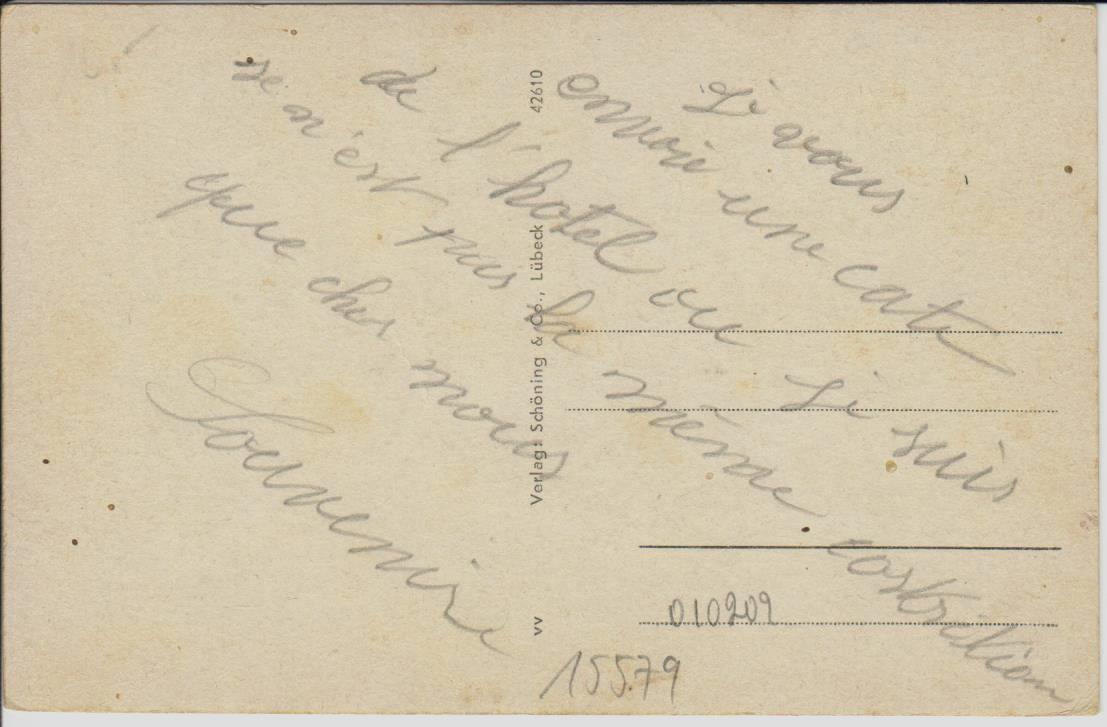 Si vous
envoie une cate
de l'hotel ou Si suis
se n'est pas la même costrition
que ches nous
Souvenire
Verlag: Schöning & Co., Lübeck 42610
vv
010209
15579